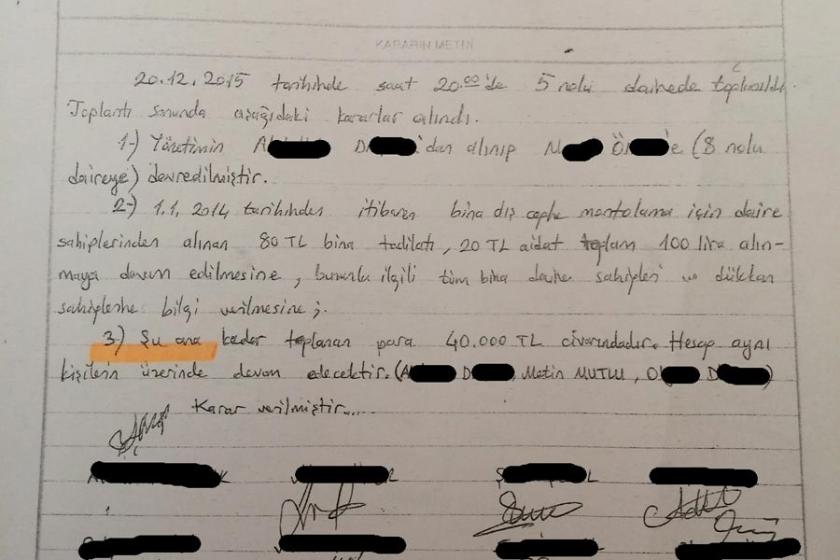 KARARIN METNİ
20.12.2015 tarihinde saat 20.00'de 5 nolu dairede toplanıldı.
Toplantı sonunda aşağıdaki kararlar alındı.
1-) Yönetimin A D 'dan alınıp M Ö 'e (8 nolu
daireye) devredilmiştir.
2-) 1.1.2014 tarihinden itibaren bina dış cephe mantolama için daire
sahiplerinden alınan 80 TL bina tadilatı, 20 TL aidat toplam 100 lira alın-
maya devam edilmesine, bununla ilgili tüm bina daire sahipleri ve dükkan
sahiplerine bilgi verilmesine;
3) Şu ana kadar toplanan para 40.000 TL civarındadır. Hesap aynı
kişilerin üzerinde devam edecektir. (A D , Metin MUTLU, O D )
Karar verilmiştir....